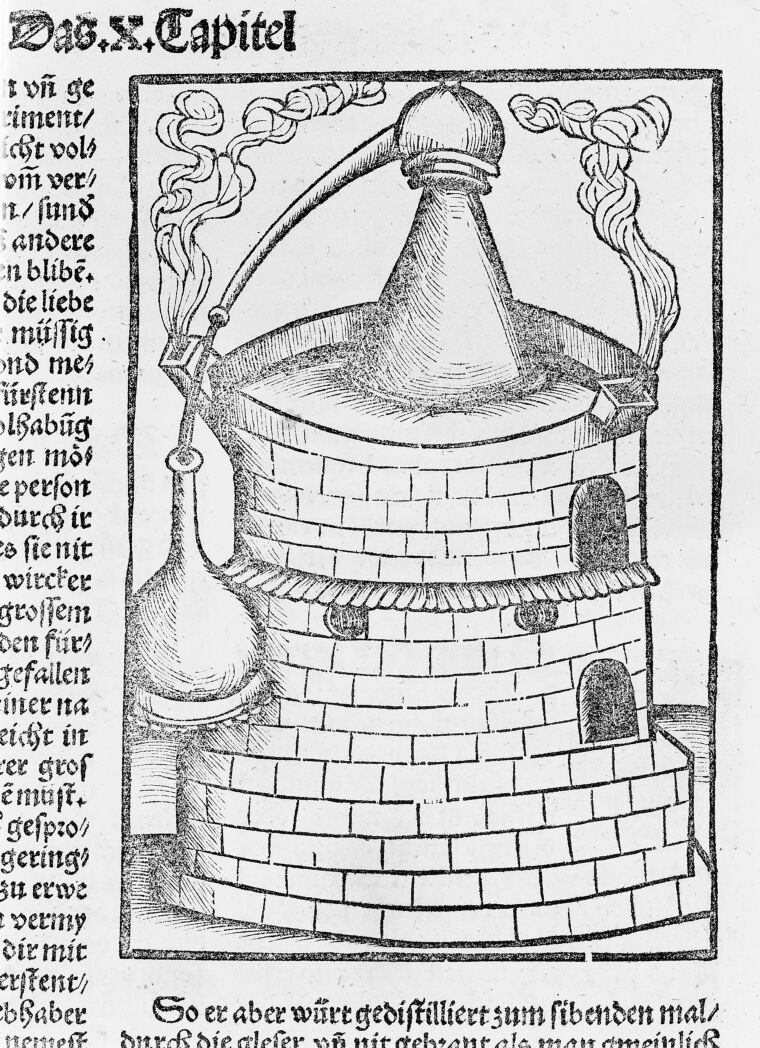 Das.X.Capitel
t vn̄ ge
riment/
icht vol⸗
vm̄ ver⸗
n/sund
andere
en blibē.
die liebe
müssig
ond me⸗
fürstenn
olhabūg
gen mö⸗
e person
durch ir
es sie nit
wircker
grossem
den für⸗
gefallen
iner na
eicht in
rer gros
ē müst.
gespro⸗
gering⸗
zu erwe
vermy
dir mit
erstent/
bhaber
nemest
So er aber würt gedistilliert zum sibenden mal/
durch die gleser, vn̄ nit gebrant als man gmeinlich